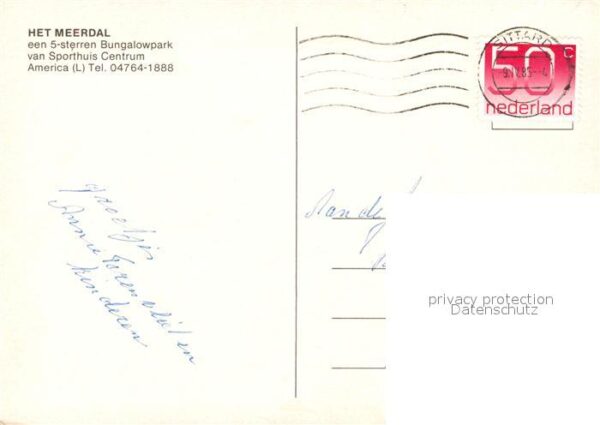 HET MEERDAL
een 5-sterren Bungalowpark
van Sporthuis Centrum
America (L) Tel. 04764-1888
SITTARD
50 c
nederland
groetjes
Annie
kinderen
Aan de
privacy protection
Datenschutz